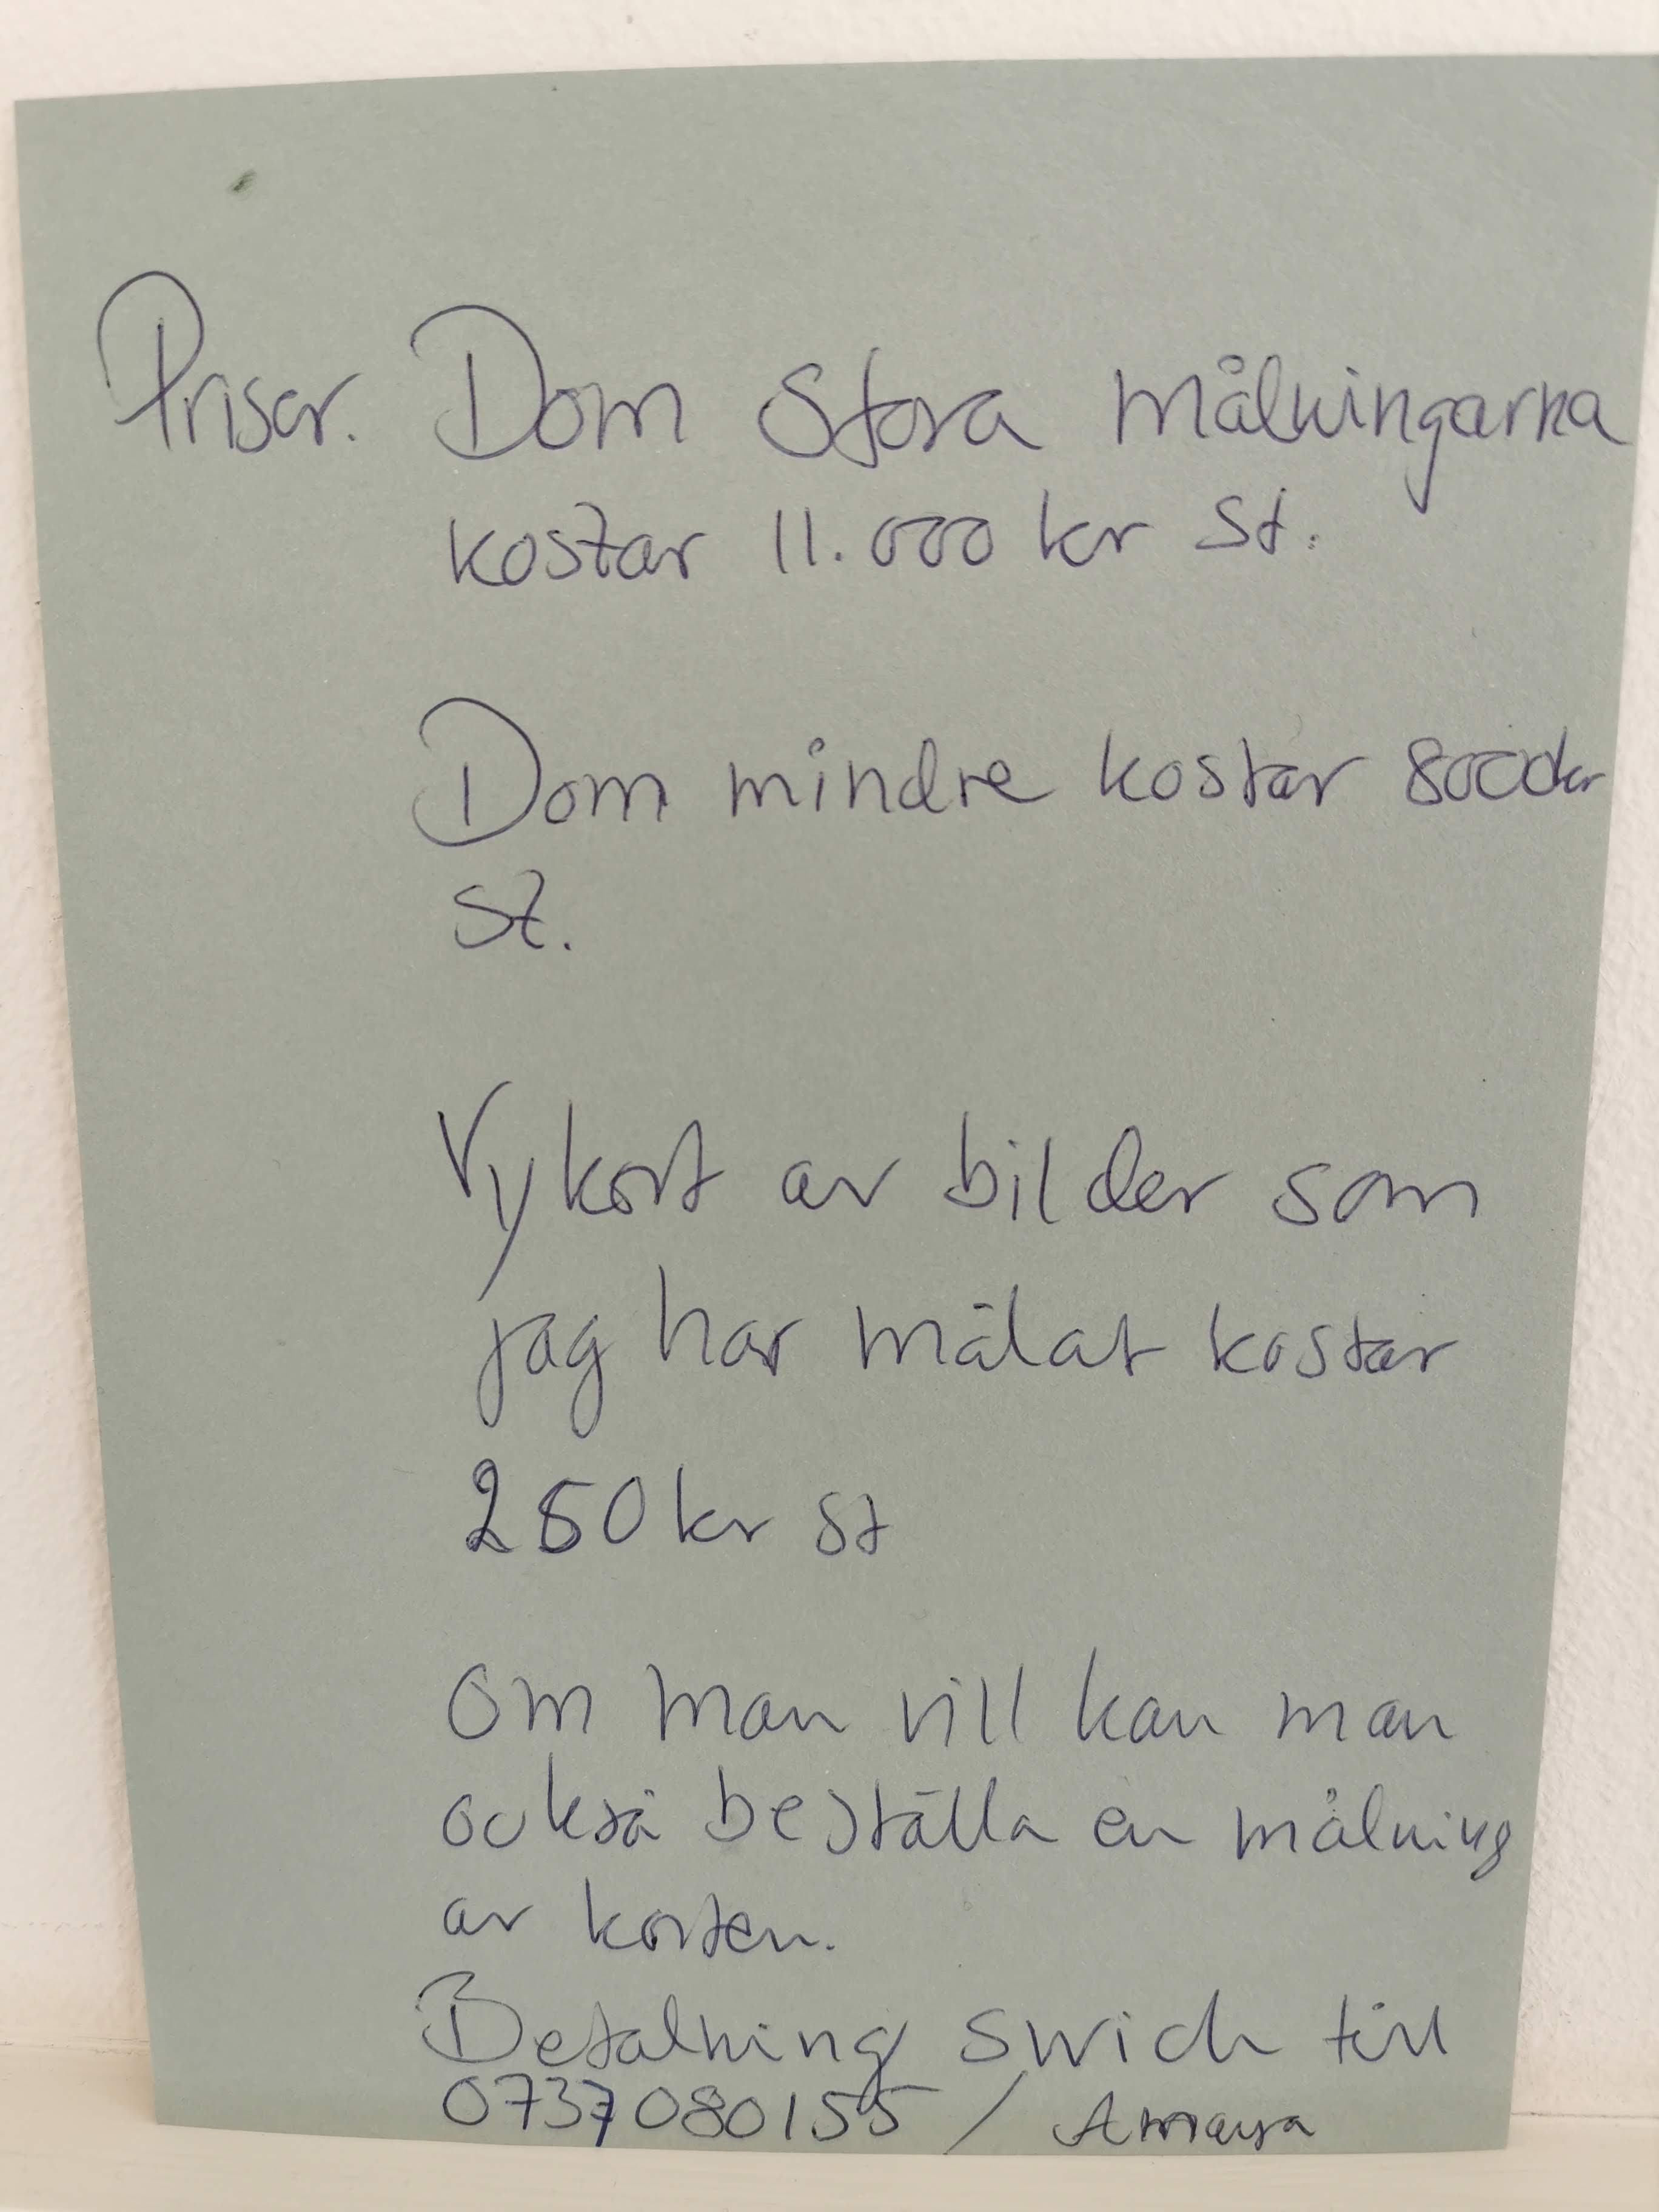 Priser. Dom stora målningarna
kostar 11.000 kr st.
Dom mindre kostar 8000kr
st.
Vykort av bilder som
jag har målat kostar
250kr st
Om man vill kan man
också beställa en målning
av korten.
Betalning swich till
0737080155 / Amaya